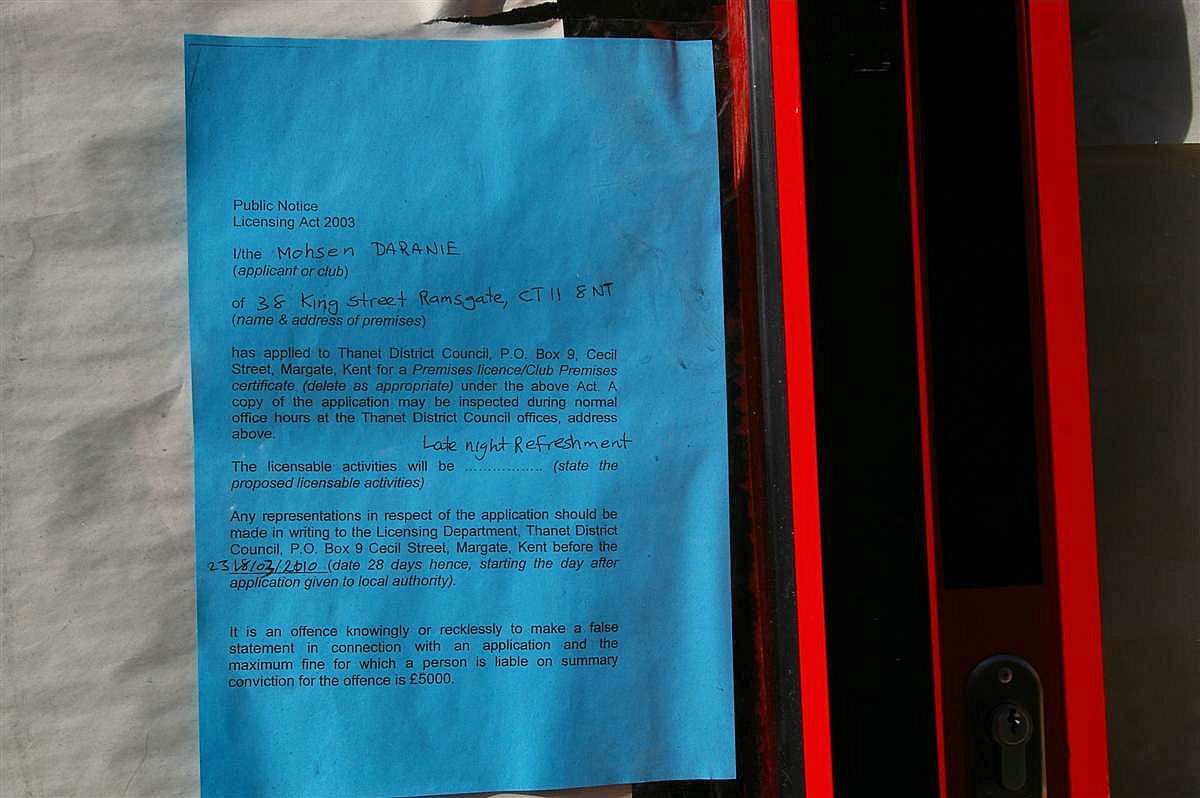 Public Notice
Licensing Act 2003
I/the Mohsen DARANIE
(applicant or club)
of 38 King street Ramsgate, CT11 8NT
(name & address of premises)
has applied to Thanet District Council, P.O. Box 9, Cecil
Street, Margate, Kent for a Premises licence/Club Premises
certificate (delete as appropriate) under the above Act. A
copy of the application may be inspected during normal
office hours at the Thanet District Council offices, address
above.
Late night Refreshment
The licensable activities will be .................. (state the
proposed licensable activities)
Any representations in respect of the application should be
made in writing to the Licensing Department, Thanet District
Council, P.O. Box 9 Cecil Street, Margate, Kent before the
/03/2010 (date 28 days hence, starting the day after
application given to local authority).
It is an offence knowingly or recklessly to make a false
statement in connection with an application and the
maximum fine for which a person is liable on summary
conviction for the offence is £5000.